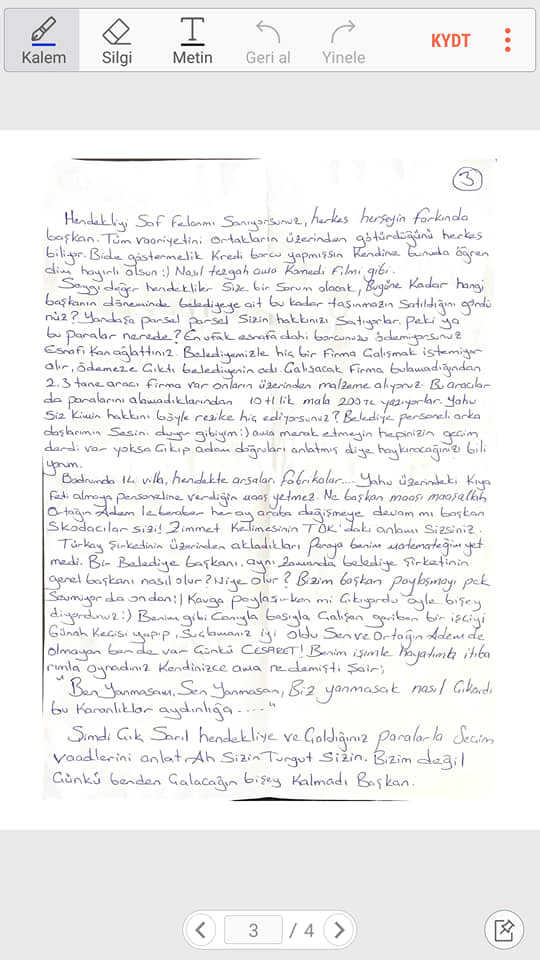 Kalem
Silgi
Metin
Geri al
Yinele
KYDT
3
Hendekliyi Saf Felanmı Sanıyorsunuz, herkes herşeyin farkında
başkan. Tüm vaariyetini ortakların üzerinden götürdüğünü herkes
biliyor. Bide göstermelik Kredi borcu yapmışsın Kendine bunuda öğren
dim hayırlı olsun :) Nasıl tezgah ama Komedi Filmi gibi.
Saygı değer hendekliler Size bir Sorum olacak, Bugüne Kadar hangi
başkanın döneminde belediyeye ait bu kadar taşınmazın Satıldığını gördü
nüz? Yandaşa parsel parsel Sizin hakkınızı Satıyorlar. Peki ya
bu paralar nerede? En ufak esnafa dahi borcunuzu ödemiyorsunuz
Esnafı Kan ağlattınız. Belediyemizle hiç bir Firma Çalışmak istemiyor
alır, ödemeze Çıktı belediyenin adı. Çalışacak Firma bulamadığından
2.3 tane aracı Firma var onların üzerinden malzeme alıyoruz. Bu aracılar
da paralarını alamadıklarından 10 tl lik mala 200 TL yazıyorlar. Yahu
Siz Kimin hakkını böyle rezilce hiç ediyorsunuz? Belediye personeli arka
daşlarımın Sesini duyar gibiyim :) ama merak etmeyin hepinizin geçim
derdi var yoksa Çıkıp adam doğruları anlatmış diye haykıracağınızı bili
yorum.
Bodrumda 14 villa, hendekte arsalar, fabrikalar.... Yahu üzerindeki Kıya
feti almaya personeline verdiğin maaş yetmez. Ne başkan maaşı maaşallah
Ortağın Adem le beraber her ay araba değişmeye devam mı başkan
Skodacılar sizi! Zimmet Kelimesinin TDK'daki anlamı Sizsiniz.
Türkay Şirketinin üzerinden akladıkları Paraya benim matematiğim yet
medi. Bir Belediye başkanı, aynı zamanda belediye Şirketinin
genel başkanı nasıl olur? Niye olur? Bizim başkan paylaşmayı pek
Sevmiyor da ondan :) Kavga paylaşırken mi Çıkıyordu öyle bişey
diyordunuz :) Benim gibi Canıyla başıyla Çalışan gariban bir işçiyi
Günah Keçisi yapıp, Suçlamanız iyi oldu Sen ve Ortağın Adem de
olmayan bende var Çünkü CESARET! Benim işimle Hayatımla itiba
rımla oynadınız Kendinizce ama ne demişti Şair;
"Ben Yanmasam, Sen Yanmasan, Biz yanmasak nasıl Çıkardı
bu Karanlıklar aydınlığa ...."
Şimdi Çık Sarıl hendekliye ve Çaldığınız paralarla Seçim
vaadlerini anlat. Ah Sizin Turgut Sizin. Bizim değil
Çünkü benden Çalacağın bişey Kalmadı Başkan.
3 / 4